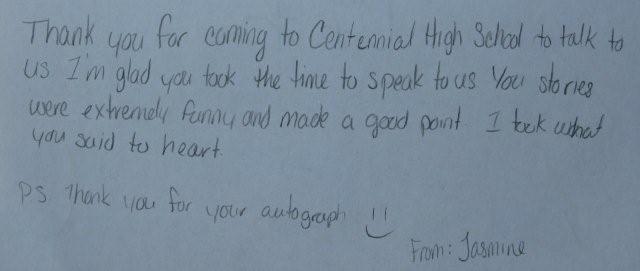 Thank you for coming to Centennial High School to talk to
us I'm glad you took the time to speak to us You stories
were extremely funny and made a good point. I took what
you said to heart.
PS Thank you for your autograph
From: Jasmine